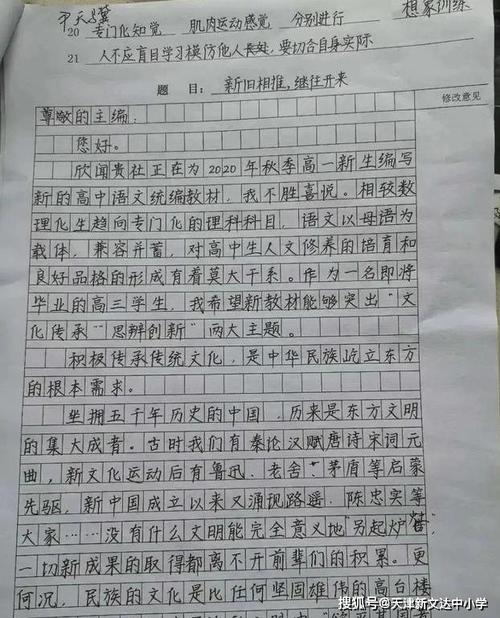 想家训练
20 专门化知觉 肌肉运动感觉 分别进行
21 人不应盲目学习模仿他人长处,要切合自身实际
题 目: 新旧相推,继往开来
修改意见
尊敬的主编:
您好。
欣闻贵社正在为2020年秋季高一新生编写
新的高中语文统编教材,我不胜喜悦。相较数
理化生趋向专门化的理科科目,语文以母语为
载体,兼容并蓄,对高中生人文修养的培育和
良好品格的形成有着莫大干系。作为一名即将
毕业的高三学生,我希望新教材能够突出“文
化传承”“思辨创新”两大主题。
积极传承传统文化,是中华民族屹立东方
的根本需求。
坐拥五千年历史的中国,历来是东方文明
的集大成者。古时我们有秦论汉赋唐诗宋词元
曲,新文化运动后有鲁迅、老舍、茅盾等启蒙
先驱,新中国成立以来又涌现路遥、陈忠实等
大家……没有什么文明能完全意义地“另起炉灶”
一切新成果的取得都离不开前辈们的积累。更
何况,民族的文化是比任何坚固雄伟的高台楼
搜狐号@天津新文达中小学